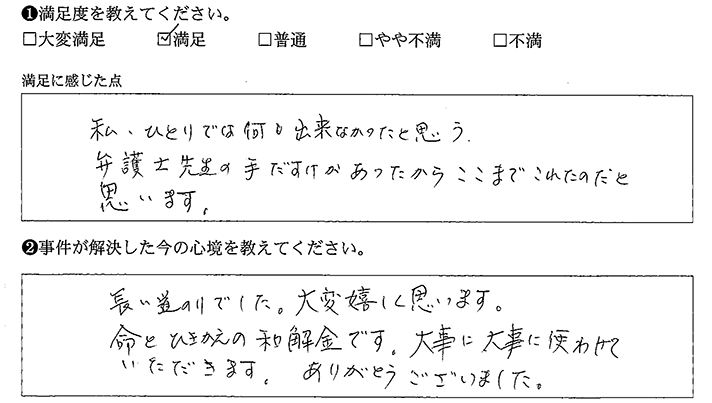 ❶満足度を教えてください。
□大変満足 ☑満足 □普通 □やや不満 □不満
満足に感じた点
私、ひとりでは何も出来なかったと思う.
弁護士先生の手だすけがあったからここまでこれたのだと
思います。
❷事件が解決した今の心境を教えてください。
長い道のりでした。大変嬉しく思います。
命とひきかえの和解金です。大事に大事に使わせて
いただきます。 ありがとうございました。